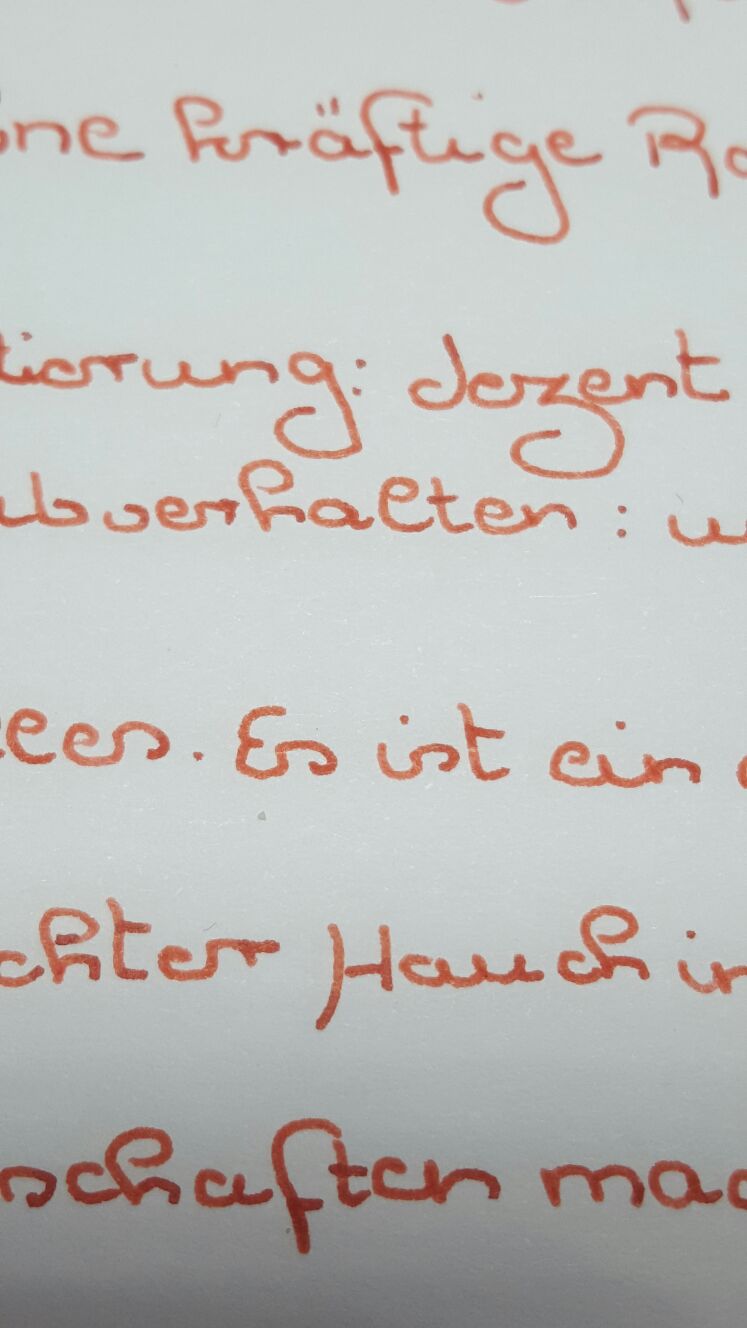 ne kräftige Ro
tierung: dezent
ubverhalten: w
ees. Es ist ein
chter Hauch in
schaften mac